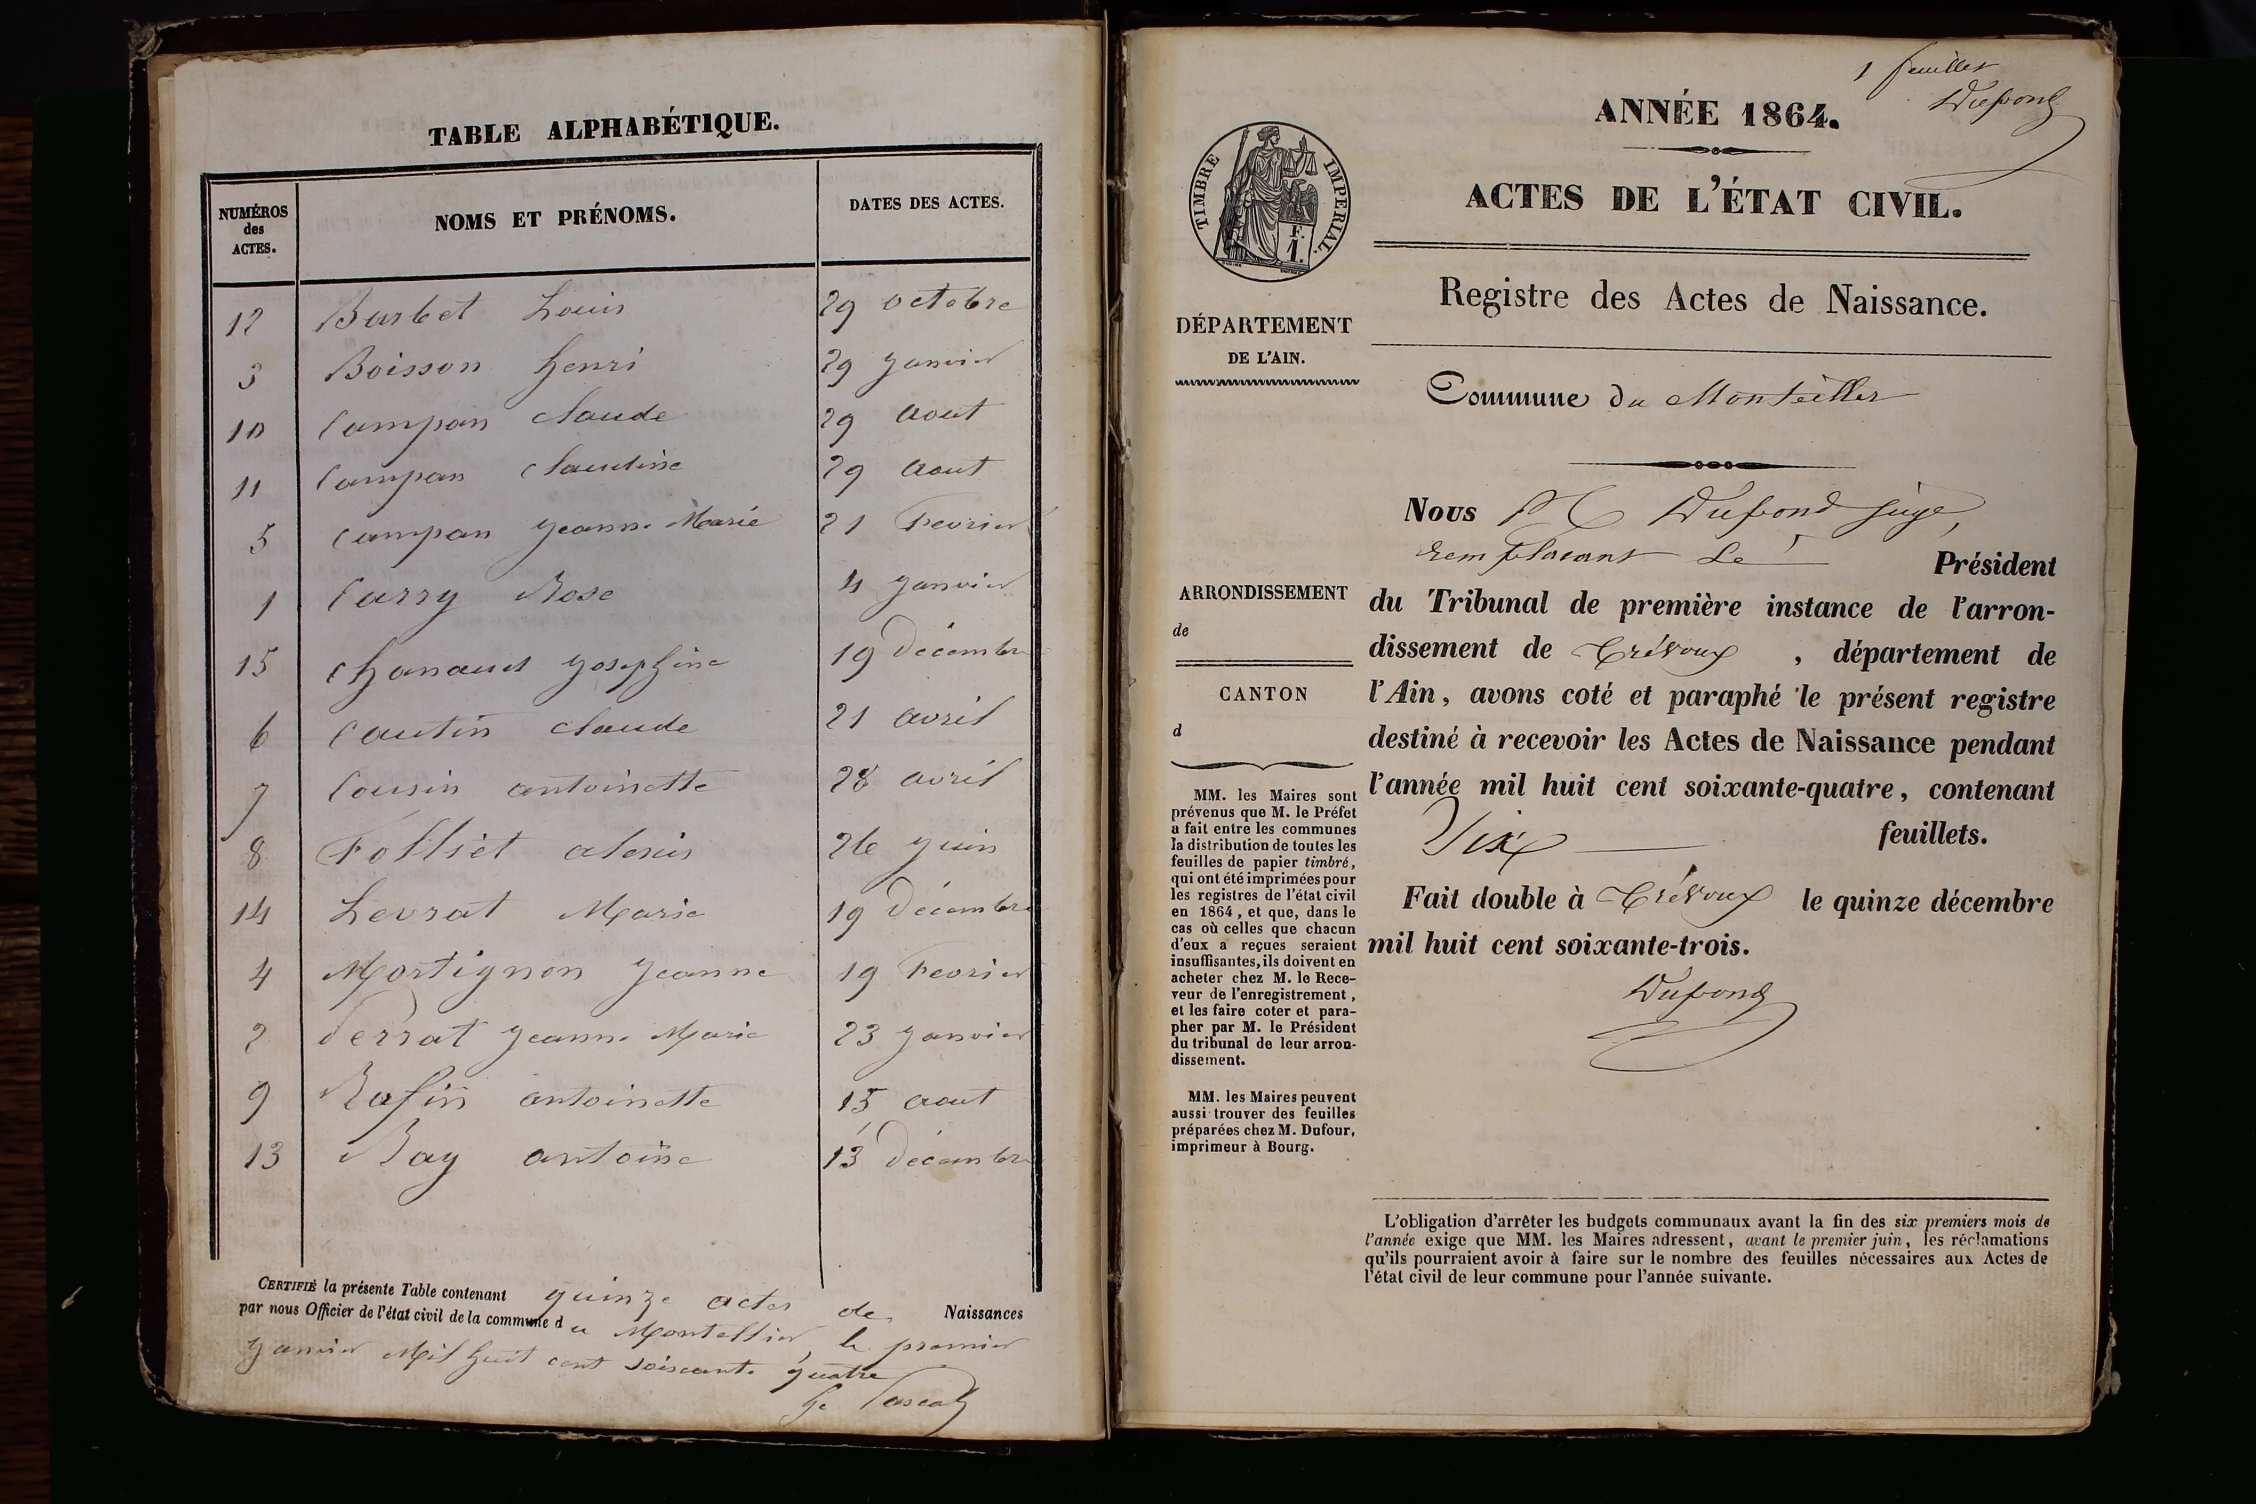 TABLE ALPHABÉTIQUE.
NUMÉROS
des
ACTES.
NOMS ET PRÉNOMS.
DATES DES ACTES.
12 Barbet Louis 29 octobre
3 Boisson henri 29 Janvier
10 Campan claude 29 aout
11 Campan claudine 29 aout
5 Campan Jeanne Marie 21 Fevrier
1 Carry Rose 4 Janvier
15 Josephine 19 décembre
6 Cautin claude 21 avril
7 Cousin antoinette 28 avril
8 Folliet alexis 26 Juin
14 Levrat Marie 19 Décembre
4 Mortignon Jeanne 19 Fevrier
2 Perrat Jeanne Marie 23 Janvier
9 Rafin antoinette 15 aout
13 Ray antoine 13 décembre
CERTIFIÉ la présente Table contenant quinze actes de Naissances
par nous Officier de l'état civil de la commune du Montellier, le premier
Janvier Mil huit cent soixante quatre
1 feuillet
Dupond
ANNÉE 1864.
TIMBRE IMPERIAL.
F.
1.
ACTES DE L'ÉTAT CIVIL.
Registre des Actes de Naissance.
DÉPARTEMENT
DE L'AIN.
Commune du Montellier
Nous Dupond juge,
remplacant Le Président
ARRONDISSEMENT
de
CANTON
d
du Tribunal de première instance de l'arron-
dissement de Trévoux, département de
l'Ain, avons coté et paraphé le présent registre
destiné à recevoir les Actes de Naissance pendant
l'année mil huit cent soixante-quatre, contenant
Six feuillets.
Fait double à Trévoux le quinze décembre
mil huit cent soixante-trois.
Dupond
MM. les Maires sont
prévenus que M. le Préfet
a fait entre les communes
la distribution de toutes les
feuilles de papier timbré,
qui ont été imprimées pour
les registres de l'état civil
en 1864, et que, dans le
cas où celles que chacun
d'eux a reçues seraient
insuffisantes, ils doivent en
acheter chez M. le Rece-
veur de l'enregistrement,
et les faire coter et para-
pher par M. le Président
du tribunal de leur arron-
dissement.
MM. les Maires peuvent
aussi trouver des feuilles
préparées chez M. Dufour,
imprimeur à Bourg.
L'obligation d'arrêter les budgets communaux avant la fin des six premiers mois de
l'année exige que MM. les Maires adressent, avant le premier juin, les réclamations
qu'ils pourraient avoir à faire sur le nombre des feuilles nécessaires aux Actes de
l'état civil de leur commune pour l'année suivante.